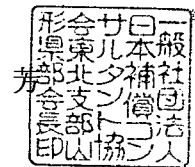 一般社団法人
日本補償コン
サルタント協
会東北支部山
形県部会長印
芳